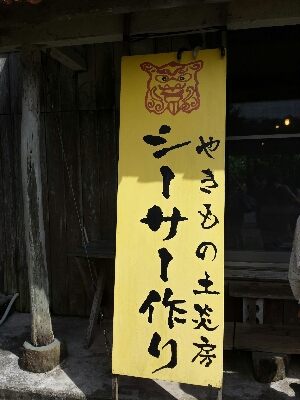 やきもの土炎房
シーサー作り